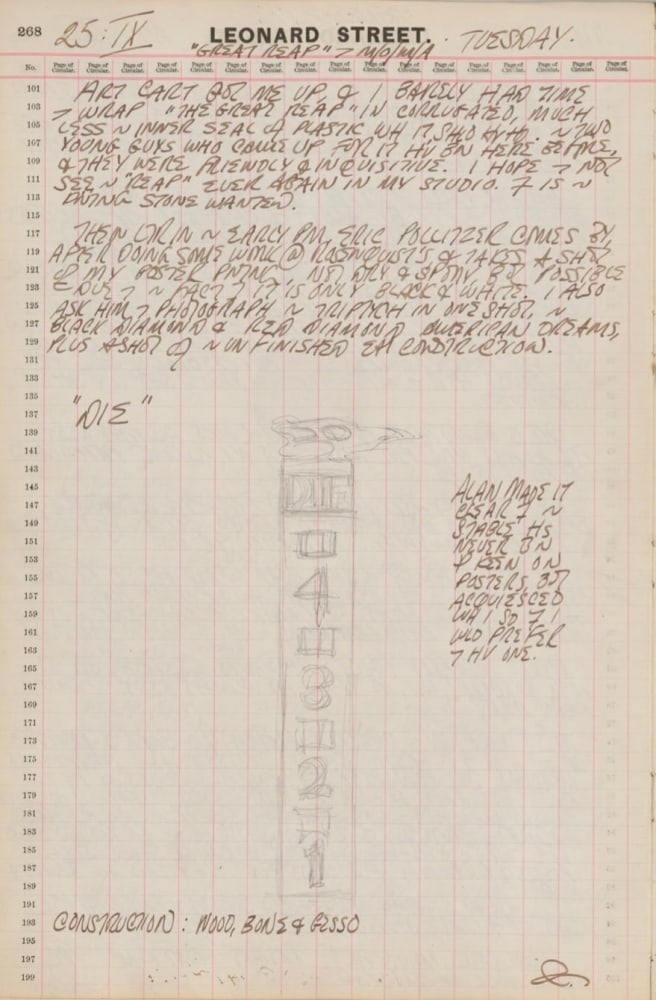 268 25: IX LEONARD STREET. TUESDAY.
"GREAT REAP" > MOMA
No. Page of Circular. Page of Circular. Page of Circular. Page of Circular. Page of Circular. Page of Circular. Page of Circular. Page of Circular. Page of Circular. Page of Circular. Page of Circular. Page of Circular. Page of Circular. Page of Circular. Page of Circular. Page of Circular.
101 ART CART GOT ME UP, & I BARELY HAD TIME
103 > WRAP "THE GREAT REAP" IN CORRUGATED, MUCH
105 LESS ~ INNER SEAL OF PLASTIC WH IT SHD HV HD. ~ TWO
107 YOUNG GUYS WHO COME UP FOR IT HV BN HERE BEFORE,
109 & THEY WERE FRIENDLY & INQUISITIVE. I HOPE > NOT
111 SEE ~ "REAP" EVER AGAIN IN MY STUDIO. IT IS ~
113 STONE WANTED.
115
117 THEN ~ EARLY PM, ERIC POLLITZER COMES BY,
119 AFTER DOING SOME WORK @ ROSENQUIST'S & TAKES A SHOT
121 OF MY POSTER PNTNG. NOT DRY & BUT POSSIBLE
123 DUE > ~ FACT IT IS ONLY BLACK & WHITE. I ALSO
125 ASK HIM > PHOTOGRAPH ~ TRIPTYCH IN ONE SHOT, ~
127 BLACK DIAMOND & RED DIAMOND AMERICAN DREAMS,
129 PLUS A SHOT OF ~ UNFINISHED EAT CONSTRUCTION.
131
133
135
137 "DIE"
139
141
143
145 DIE ALAN MADE IT
147 CLEAR ~
149 STABLE HS
151 NEVER BN
153 KEEN ON
155 4 POSTERS, BUT
157 ACQUIESCED
159 WH I SD I
161 WLD PREFER
163 > HV ONE.
165
167 3
169
171
173
175
177 2
179
181
183
185
187 1
189
191
193 CONSTRUCTION: WOOD, BONE & GESSO
195
197
199